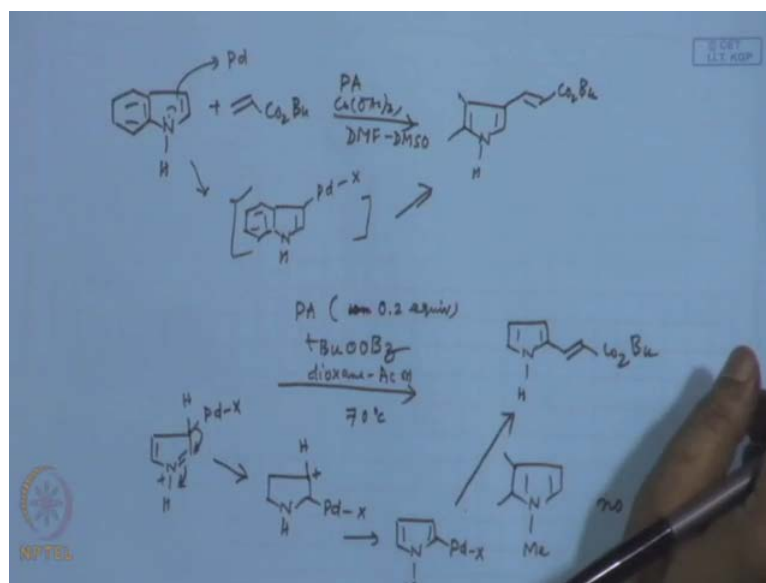 Pd
© CET
I.I.T. KGP
N
H
+
CO2Bu
PA
Cu(OAc)2,
DMF-DMSO
CO2Bu
N
H
Pd-X
N
H
PA ( 0.2 equiv)
tBuOOBz
dioxane-AcOH
70°C
CO2Bu
N
H
H
Pd-X
N
+
H
H
+
Pd-X
N
H
Pd-X
N
N
Me
no
NPTEL